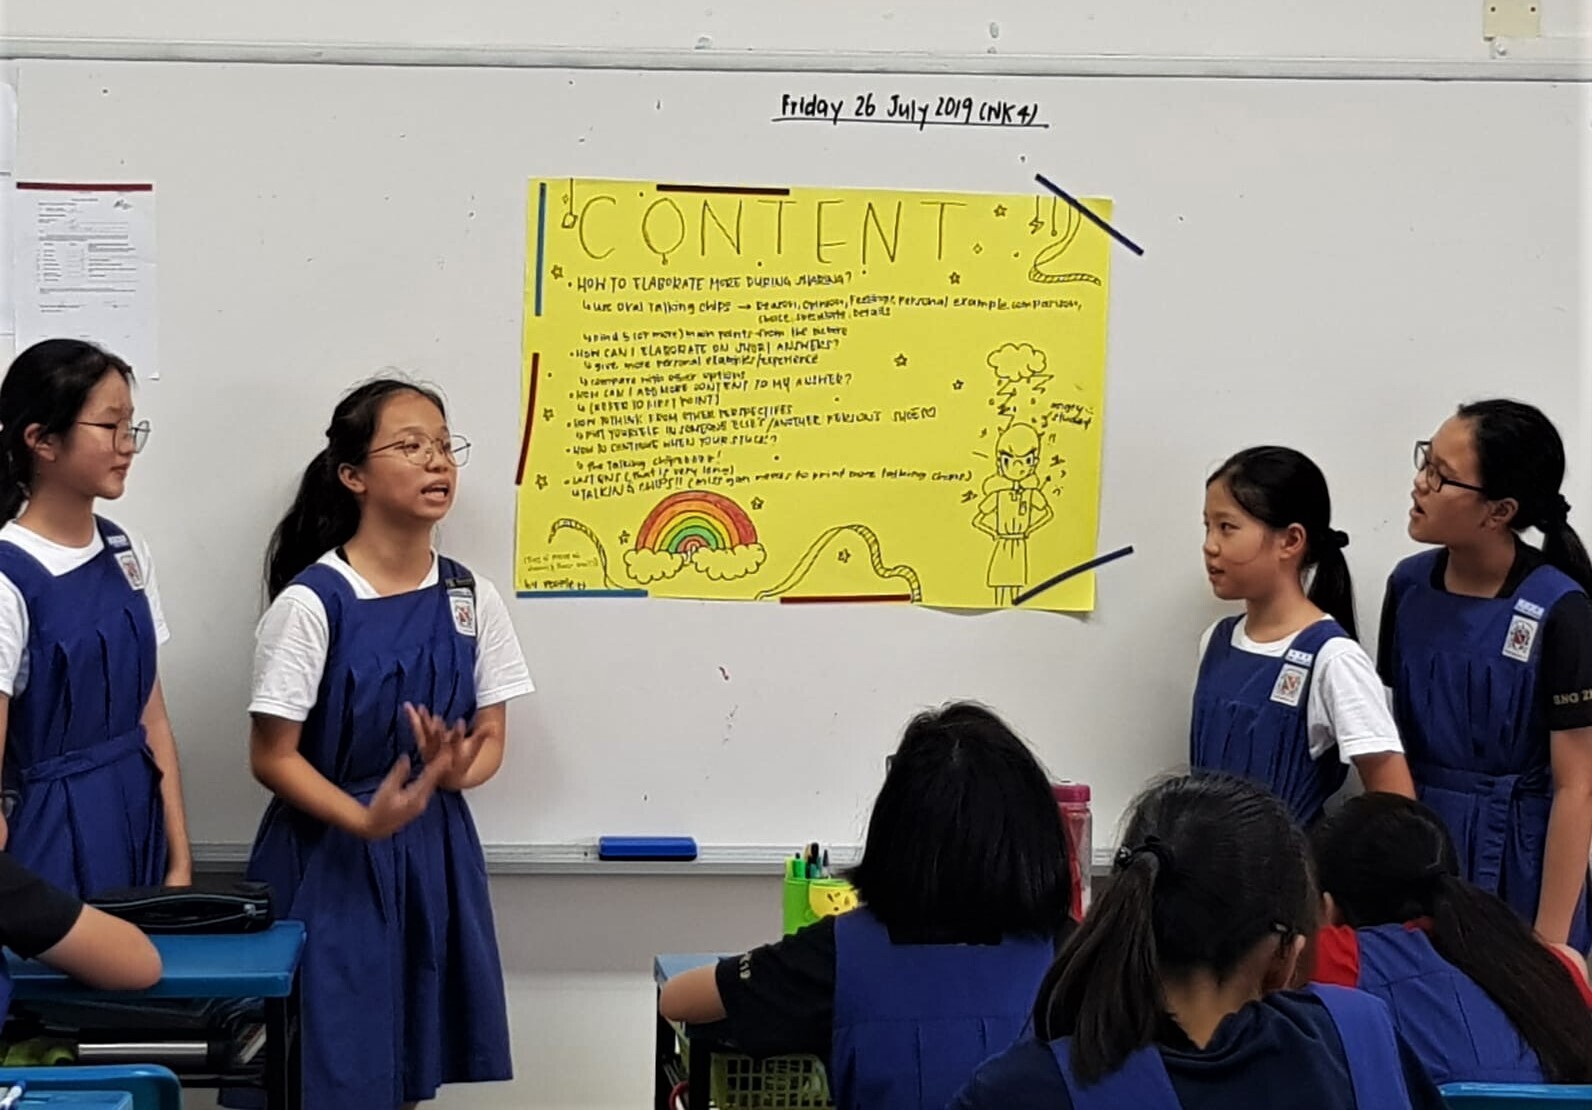 Friday 26 July 2019 (NK4)
CONTENT
• HOW TO ELABORATE MORE DURING SHARING?
↳ use oral Talking chips → Reason, Opinion, Feelings, Personal example, comparison,
choice, speculate, Details
↳ Find 5 (or more) main points from the picture
• HOW CAN I ELABORATE ON SHORT ANSWERS?
↳ give more personal examples/experience
↳ compare with other options
• HOW CAN I ADD MORE CONTENT TO MY ANSWER?
↳ (REFER TO FIRST POINT)
• HOW TO THINK FROM OTHER PERSPECTIVES
↳ PUT YOURSELF IN SOMEONE ELSE'S/ANOTHER PERSON'S SHOES
• HOW TO CONTINUE WHEN YOUR STUCK?
↳ the Talking chips
(that is very long)
↳ TALKING CHIPS!! (miss needs to print more talking chips)
angry
student
by